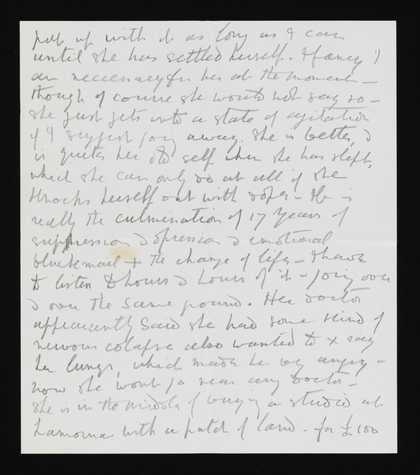 put up with it as long as I can
until she has settled herself. I fancy I
am necessary for her at the moment –
though of course she would not say so –
she just gets into a state of agitation
if I suggest going away. She is better, &
is quite her old self when she has slept,
which she can only do at all if she
knocks herself out with dope – It is
really the culmination of 17 years of
suppression & opression & emotional
blackmail + the change of life – I have
to listen to hours & hours of it – going over
& over the same ground. Her doctor
apparently said she had some kind of
nervous colapse also wanted to x ray
her lungs, which made her very angry –
now she wont go near any doctor –
she is in the middle of buying a studio at
Lamorna with a patch of land – for £100